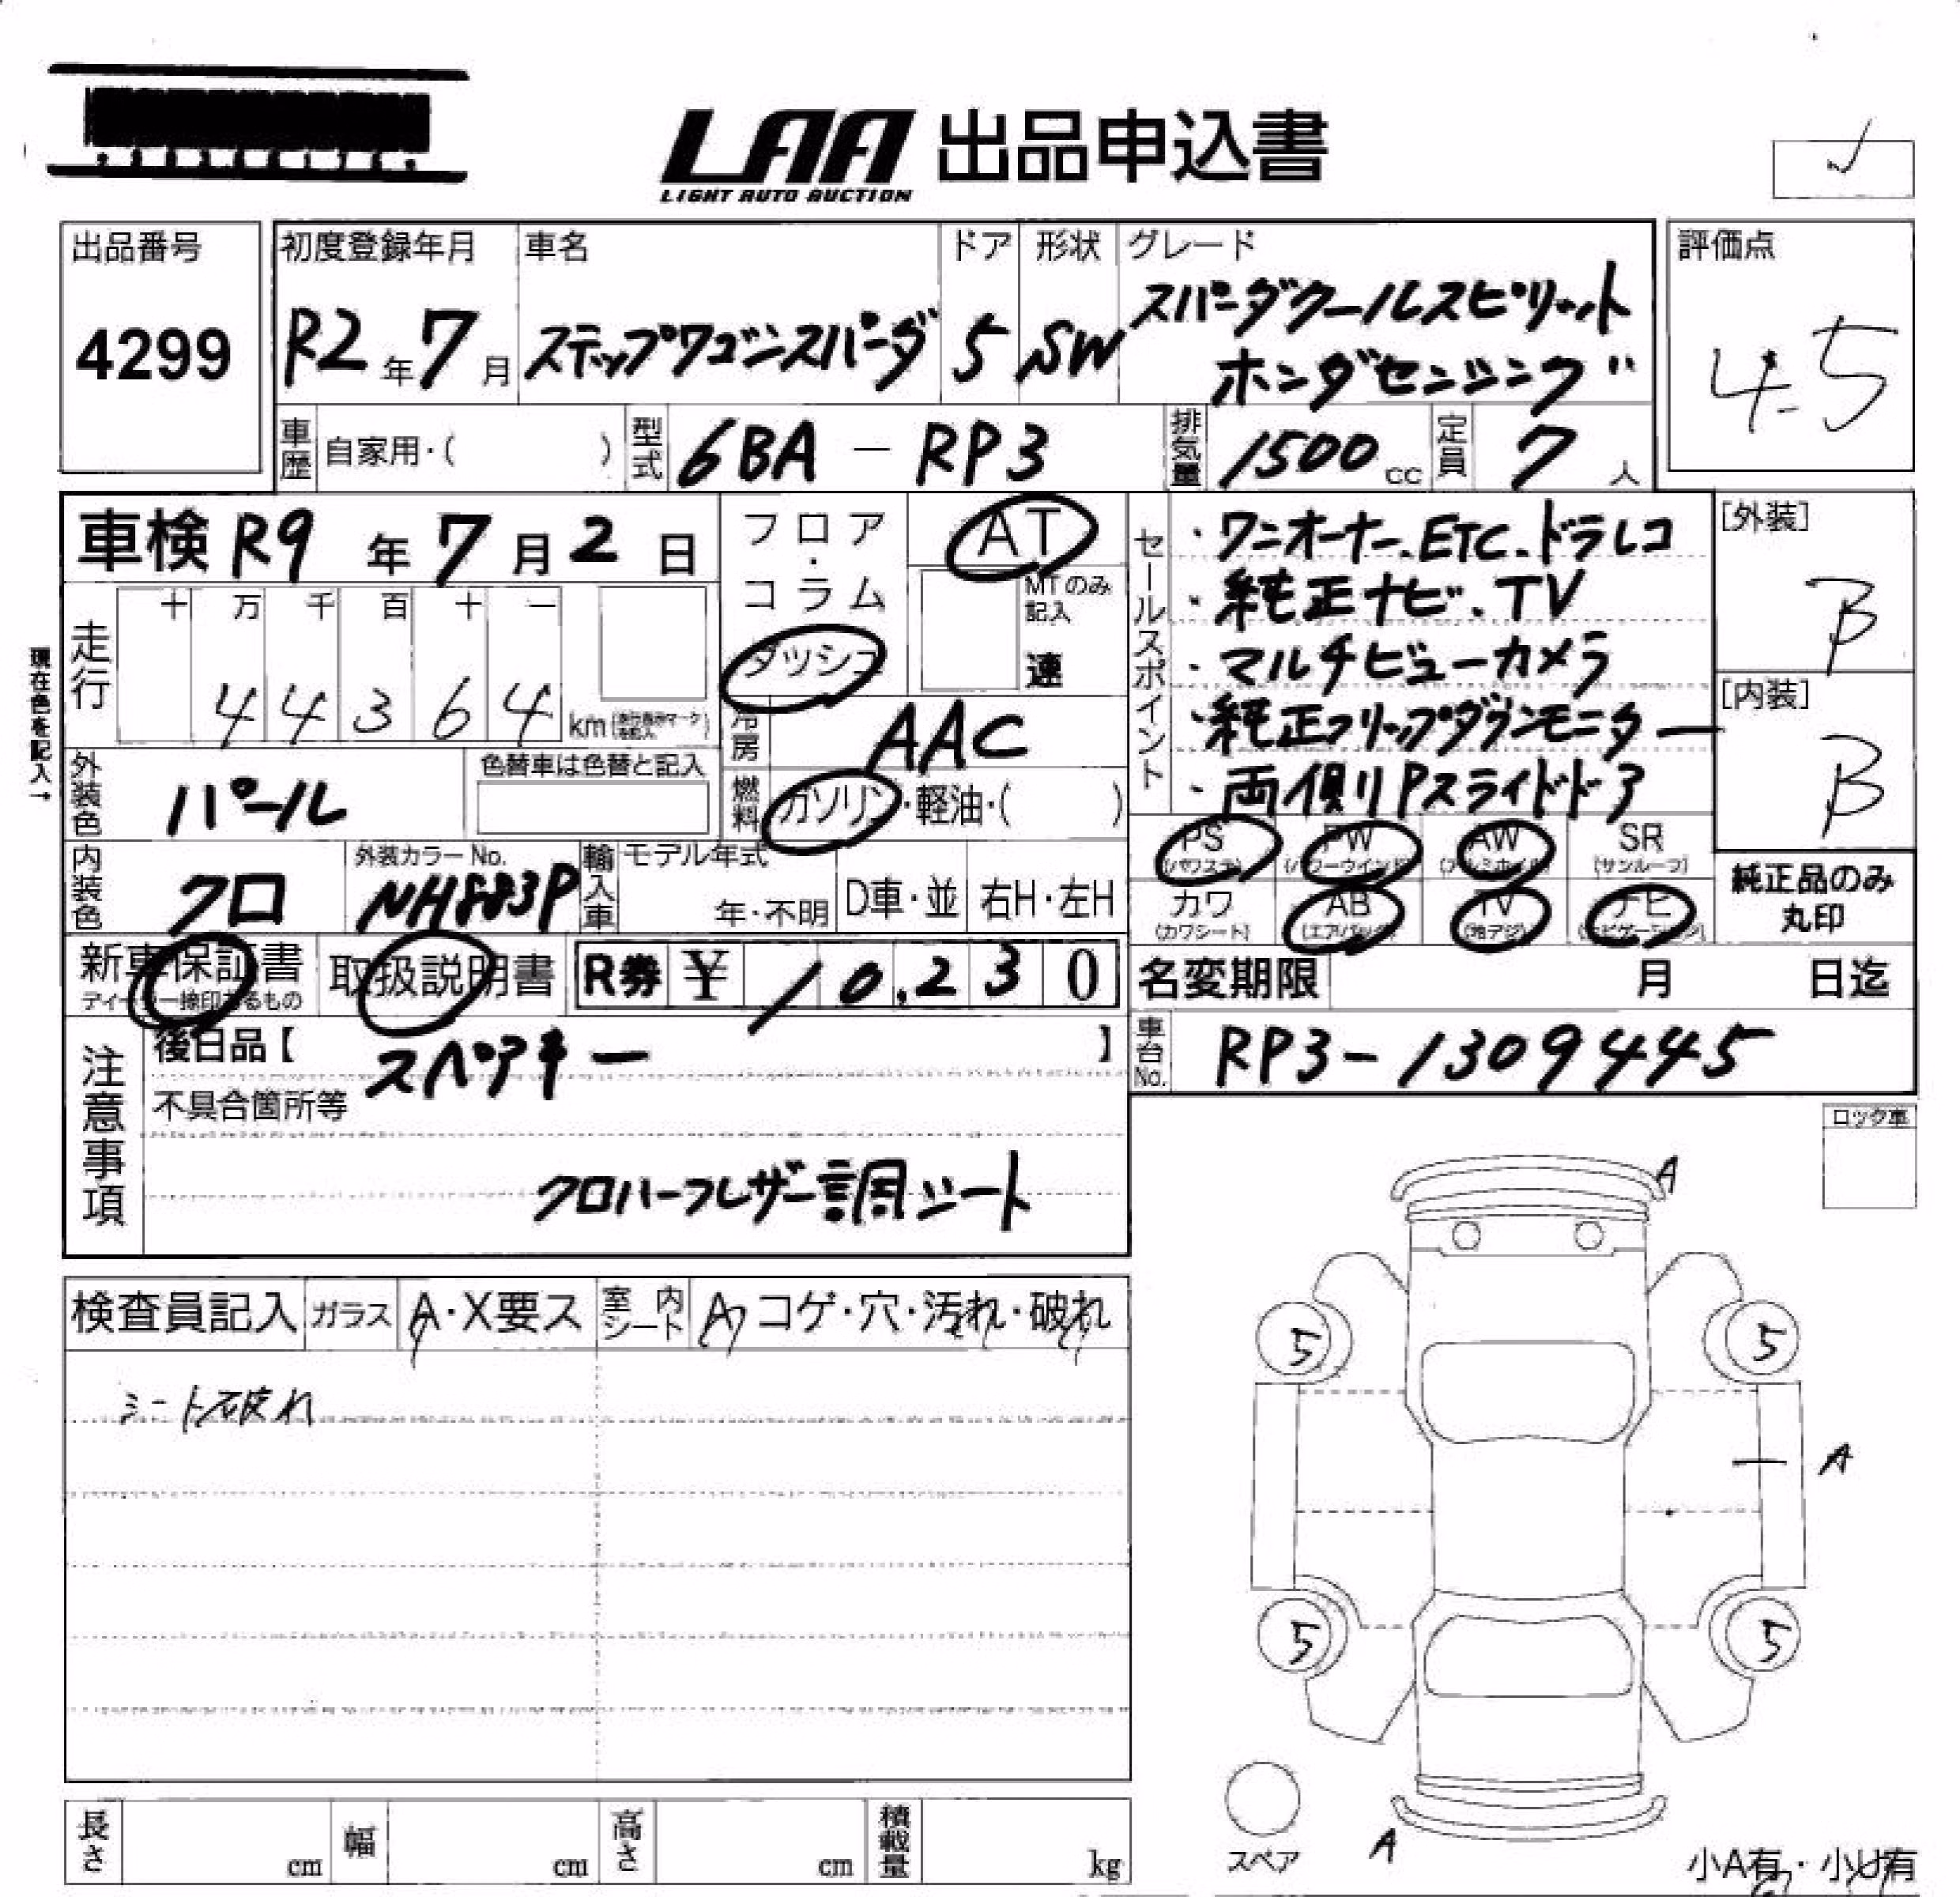 LAA 出品申込書
LIGHT AUTO AUCTION
出品番号
4299
初度登録年月
R2年7月
車名
ステップワゴンスパーダ
ドア
5
形状
SW
グレード
スパーダクールスピリット
ホンダセンシング
評価点
4.5
車歴 自家用・( )
型式 6BA - RP3
排気量 1500cc
定員 7人
車検 R9年7月2日
フロア・コラム
ダッシュ
AT
MTのみ記入
速
現在色を記入→
走行
十 万 千 百 十 一
4 4 3 6 4 km
冷房 AAC
燃料 ガソリン・軽油・( )
外装色 パール
色替車は色替と記入
内装色 クロ
外装カラーNo.
NH883P
輸入車 モデル年式
年・不明
D車・並
右H・左H
セールスポイント
・ワンオーナー、ETC、ドラレコ
・純正ナビ、TV
・マルチビューカメラ
・純正フリップダウンモニター
・両側Pスライドドア
[外装]
B
[内装]
B
PS PW AW SR
(パワステ) (パワーウインド) (アルミホイル) (サンルーフ)
カワ AB TV ナビ
(カワシート) (エアバック) (地デジ) (ナビゲーション)
純正品のみ
丸印
新車保証書
ディーラー捺印あるもの
取扱説明書
R券 ¥ 10,230
名変期限 月 日迄
車台No. RP3-1309445
注意事項
後日品【 スペアキー 】
不具合箇所等
クロハーフレザー調シート
ロック車
検査員記入 ガラス A・X要ス 室内シート A コゲ・穴・汚れ・破れ
シート破れ
A
5 5
A
5 5
スペア
A
小A有・小U有
長さ cm 幅 cm 高さ cm 積載量 kg